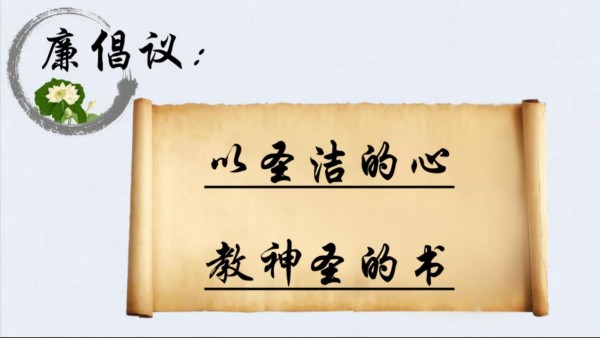 廉倡议：
以圣洁的心
教神圣的书